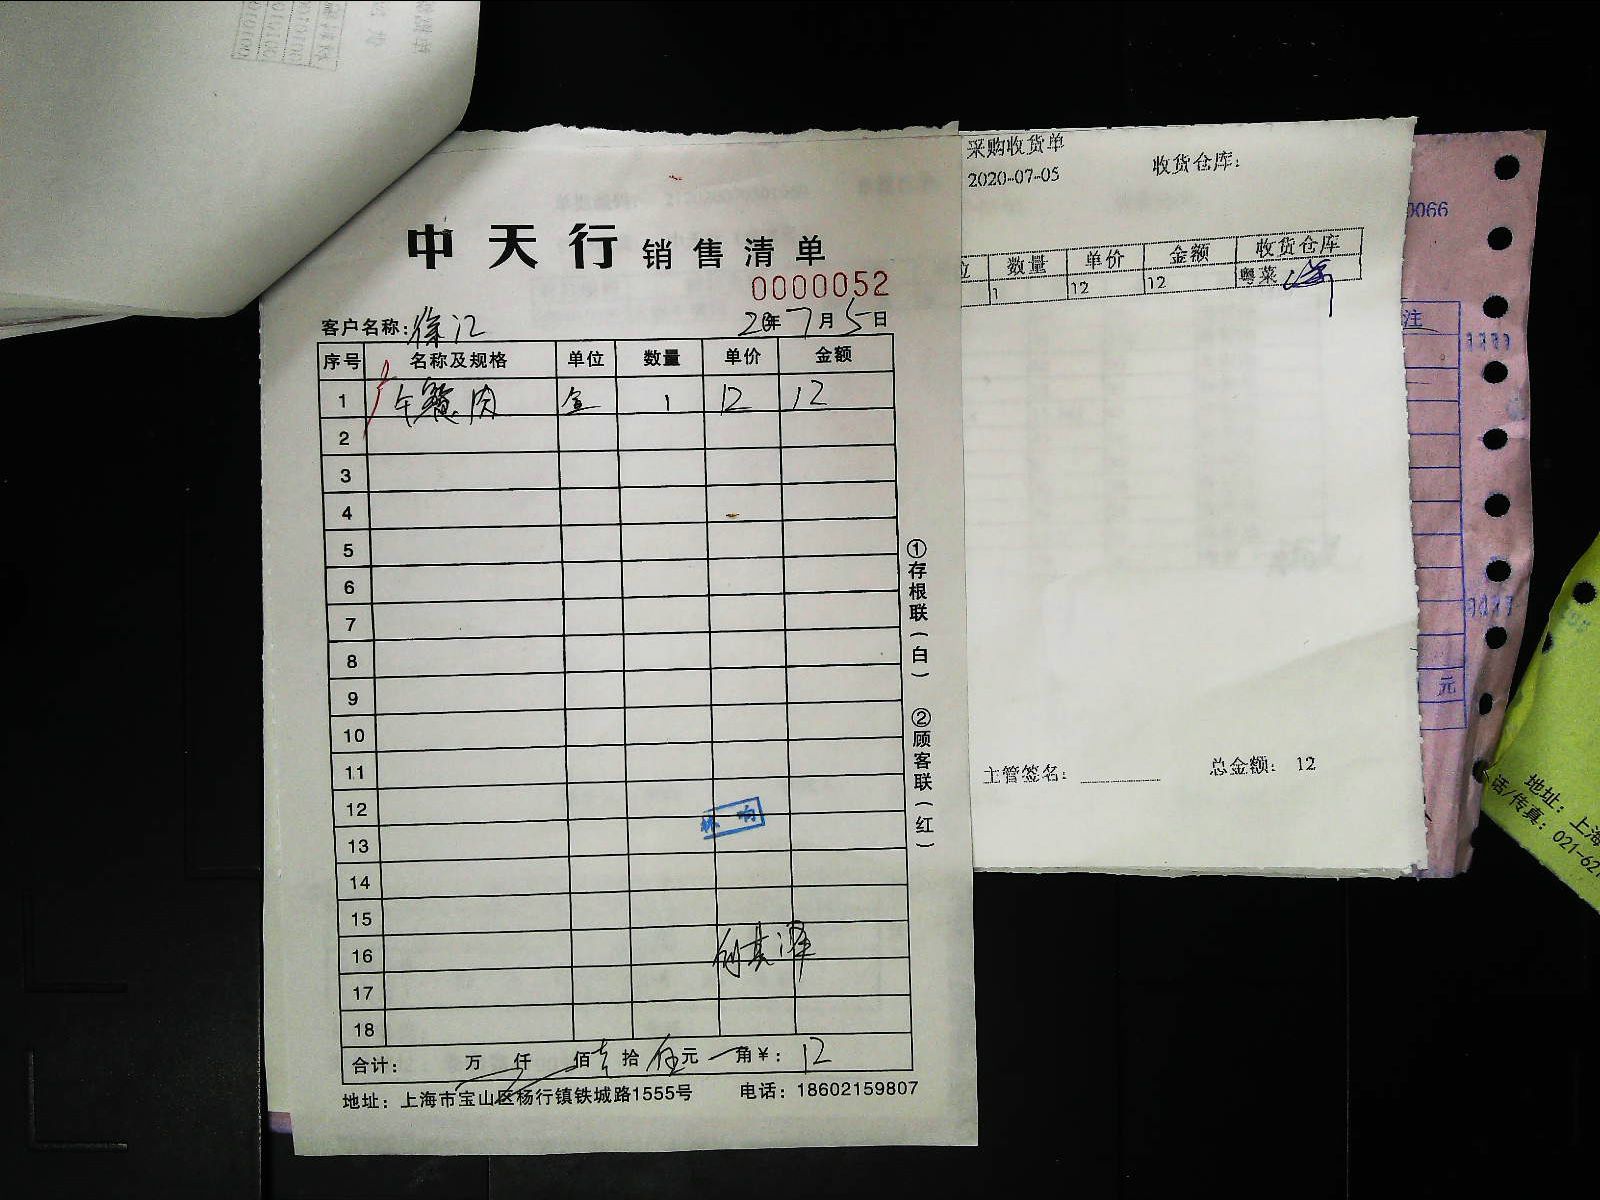 中天行 销售清单
0000052
客户名称：徐汇 20年7月5日
序号 名称及规格 单位 数量 单价 金额
1 午餐肉 盒 1 12 12
2
3
4
5
6
7
8
9
10
11
12
13
14
15
16
17
18
合计： 万 仟 佰 拾 元 角 ¥：12
地址：上海市宝山区杨行镇铁城路1555号 电话：18602159807
①存根联（白） ②顾客联（红）
采购收货单
2020-07-05 收货仓库：
位 数量 单价 金额 收货仓库
1 12 12 粤菜
主管签名： 总金额： 12
0066
注
元
地址：上海
话/传真：021-62